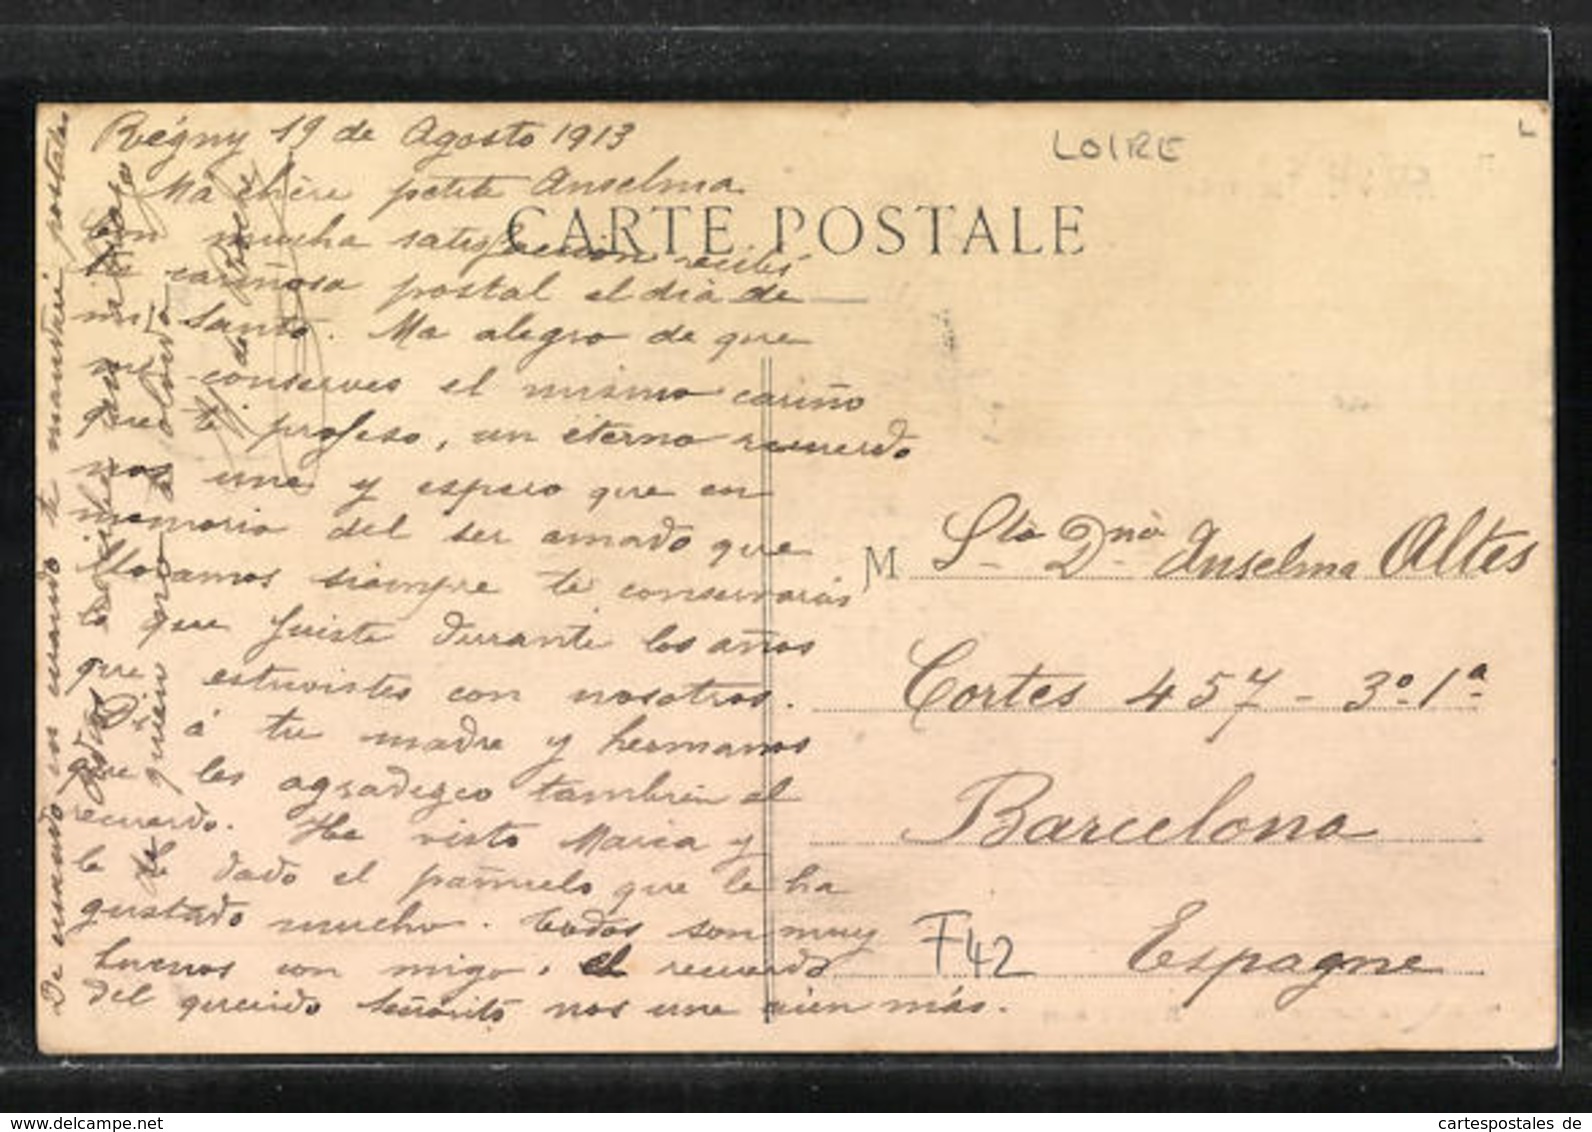 Régny 19 de Agosto 1913
Ma chère petite Anselma
Con mucha satisfaccion recibi
tu cariñosa postal el dia de
mi Santo. Me alegro de que
me conserves el mismo cariño
que te profeso, un eterno recuerdo
nos une y espero que en
memoria del ser amado que
lloramos siempre te conservarás
lo que fuiste durante los años
que estuvistes con nosotros.
Di á tu madre y hermanos
que les agradezco tambien el
recuerdo. He visto Maria y
le he dado el pañuelo que le ha
gustado mucho. todos son muy
buenos con migo. el recuerdo
del querido Señorito nos une bien más.
De cuando en cuando te mandaré postales
de quien no te olvida
CARTE POSTALE
LOIRE
L
M Sta Dña Anselma Altes
Cortes 457 - 3º 1ª
Barcelona
F42 Espagne
cartespostales.de
www.delcampe.net